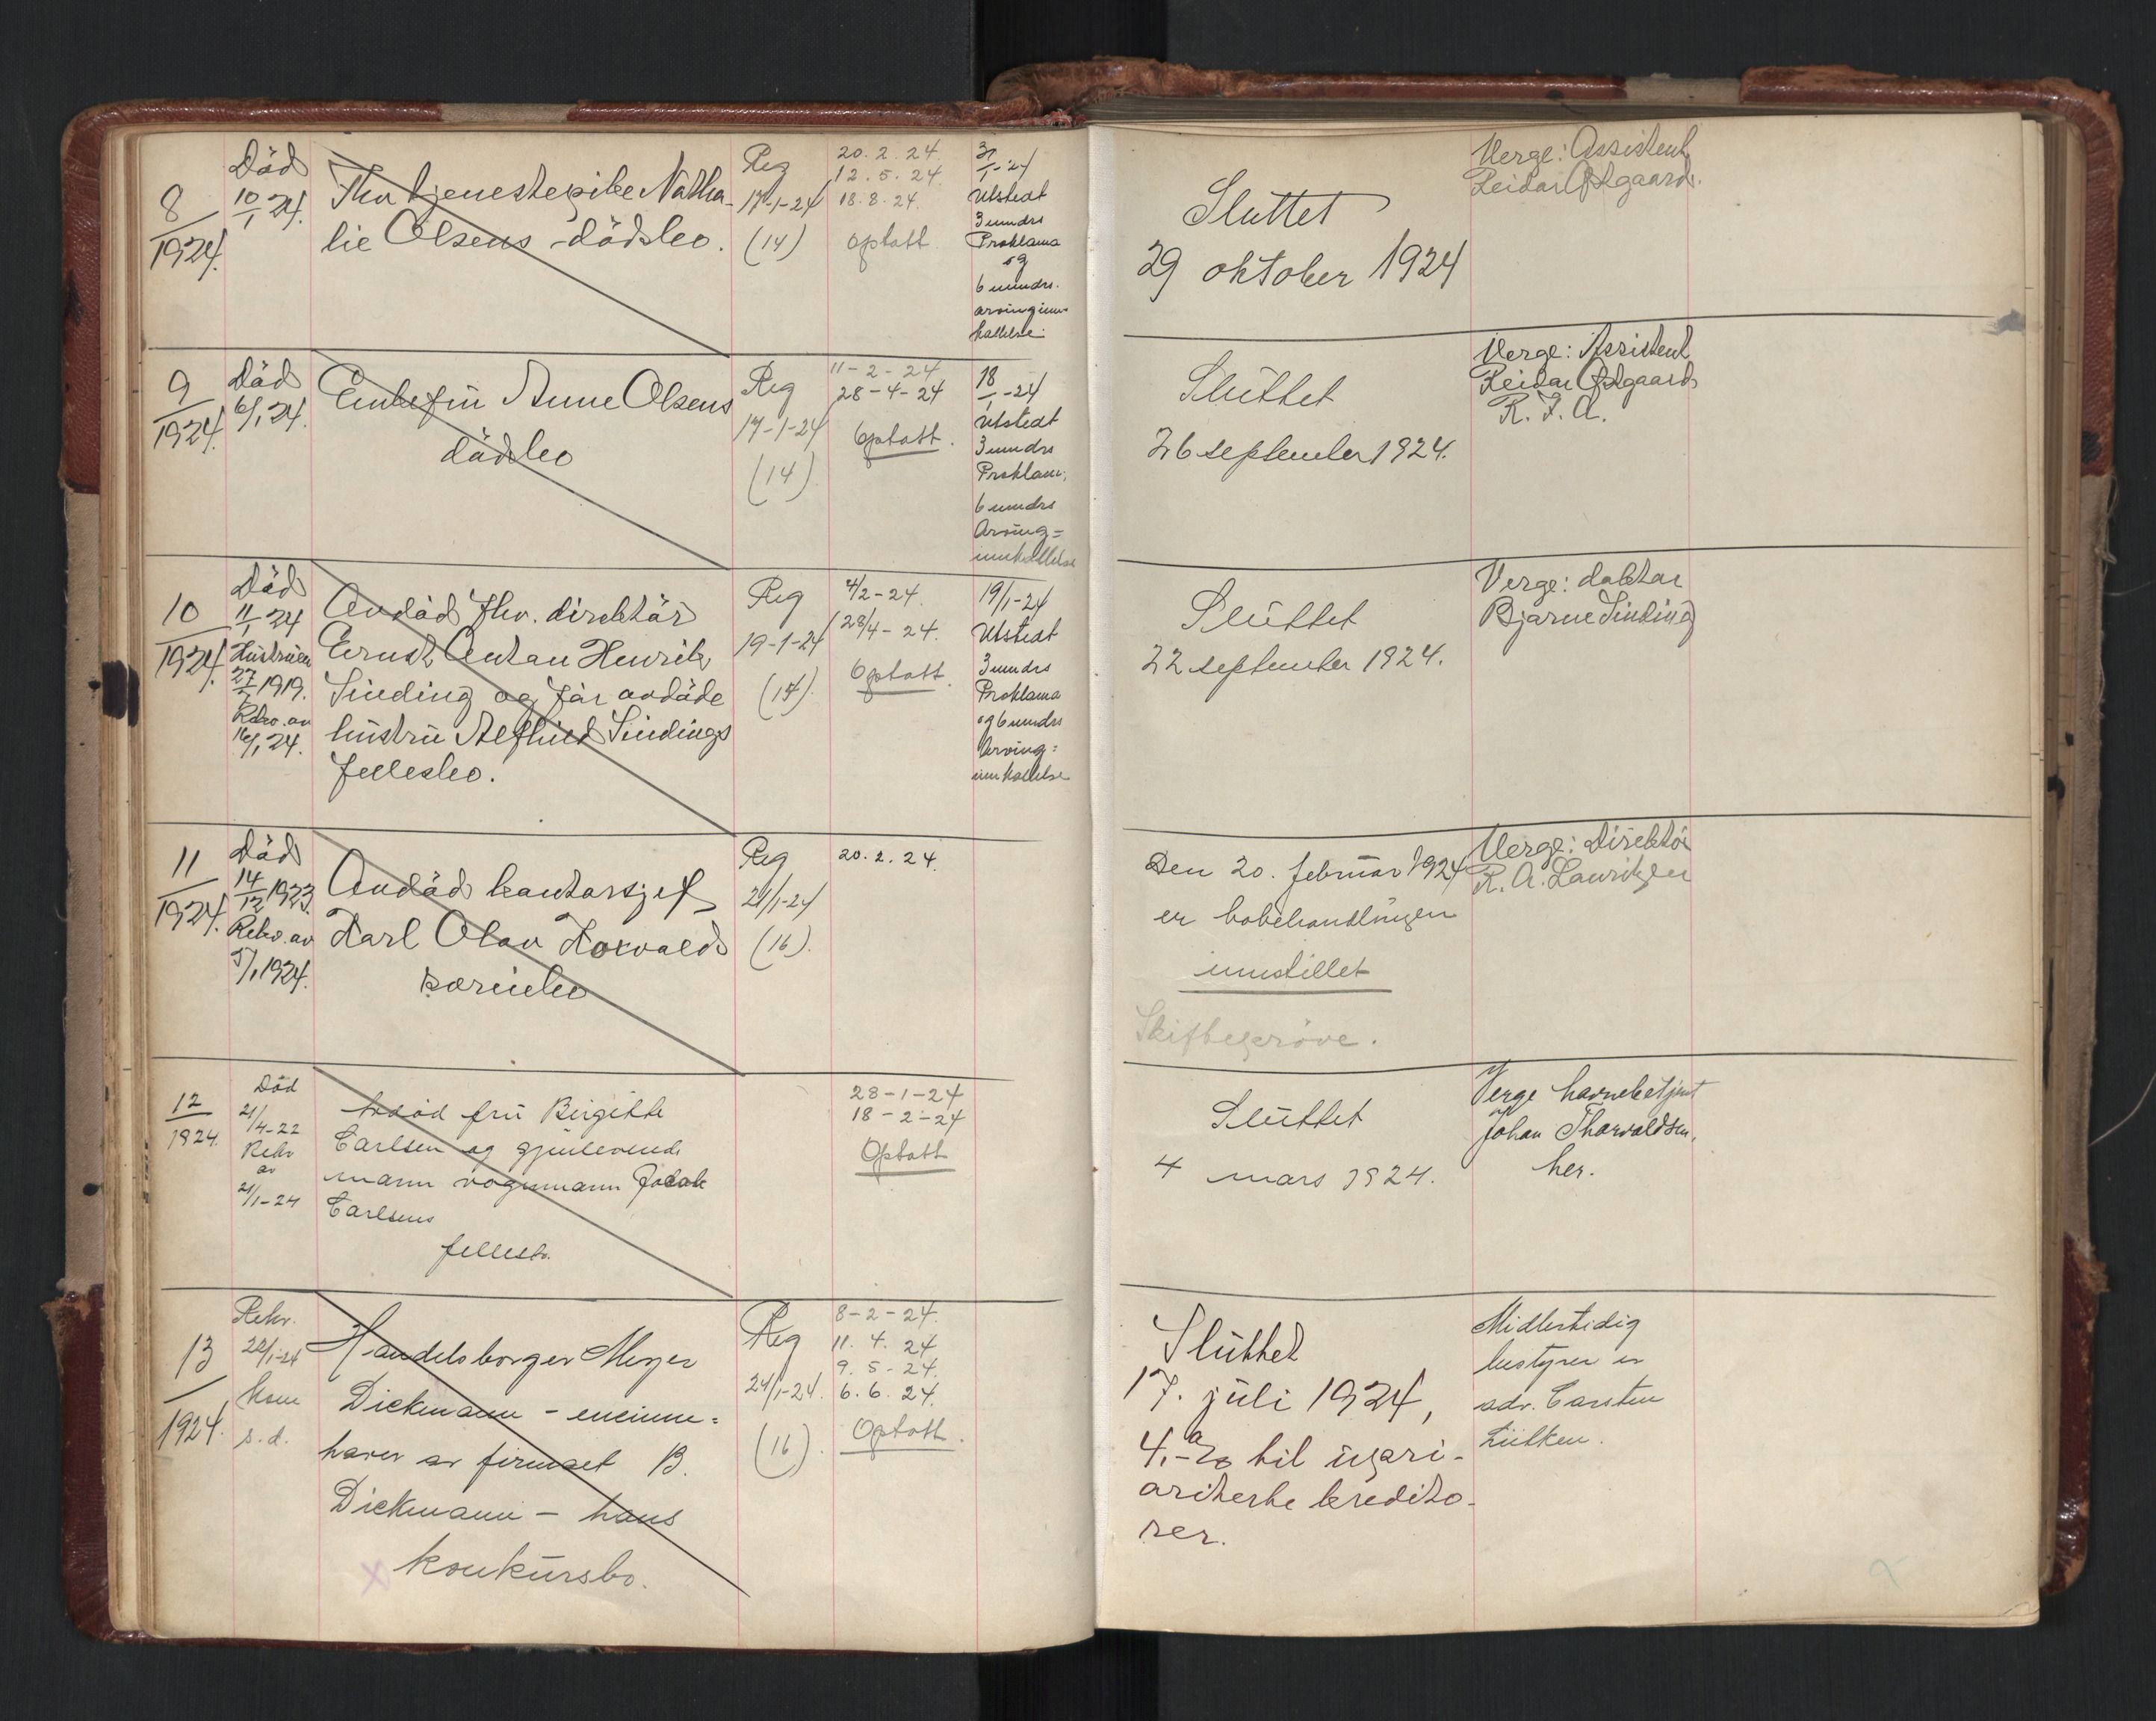 8
1924.
Död
10/1 24.
Fhv tjenestepike Natha-
lie Olsens dödsbo.
Reg
17-1-24
(14)
20.2.24.
12.5.24.
18.8.24.
Optatt
31/1-24
Utstedt
3 mndrs
Proklama
og
6 mndrs.
arvinginn-
kallelse.
Sluttet
29 oktober 1924
Verge: Assistent
Reidar
9
1924.
Död
6/1 24.
Enkefru Anne Olsens
dödsbo
Reg
17-1-24
(14)
11-2-24
28-4-24
Optatt.
18/1-24
Utstedt
3 mndrs
Proklam.
6 mndrs
Arving=
innkallelse
Sluttet
26 september 1924.
Verge: Assistent
Reidar
R. F. A.
10
1924.
Död
11/1 24
Hustruen
27/ 1919.
Rekv. av
16/1 24.
Avdöd fhv. direktör
Ernst Anton Henrik
Sinding og før avdöde
hustru Sindings
fellesbo.
Reg
19-1-24
(14).
4/2-24.
28/4-24.
Optatt.
19/1-24
Utstedt
3 mndrs
Proklama
og 6 mndrs
Arving=
innkallelse
Sluttet
22 september 1924.
Verge: doktor
Bjarne Sinding
11
1924.
Död
14/12 1923.
Rekv. av
5/1 1924.
Avdöd kontorsjef
Karl Olav Horvalds
særiebo
Reg
21/1-24
(16).
20.2.24.
Den 20. februar 1924
er bobehandlingen
innstillet
Skifteprøve.
Verge: Direktör
R. A. Lauritzen
12
1924.
Död
21/4-22
Rekv
av
21/1-24
Avdöd fru Birgitte
Carlsen og gjenlevende
mann vognmann Jakob
Carlsens
fellesb.
28-1-24
18-2-24
Optatt
Sluttet
4 mars 1924.
Verge havnebetjent
Johan Thorvaldsen,
her.
13
1924.
Rekv.
22/1-24
Kom
s.d.
Handelsborger Meyer
Dickmann - eneinne=
haver av firmaet B.
Dickmann - hans
x konkursbo.
Reg
24/1-24.
(16).
8-2-24.
11.4.24
9.5-24.
6.6.24.
Optatt.
Sluttet
17. juli 1924,
4,- % til upri-
oriterte kredito-
rer.
Midlertidig
bestyrer er
adv. Carsten
Lütken.